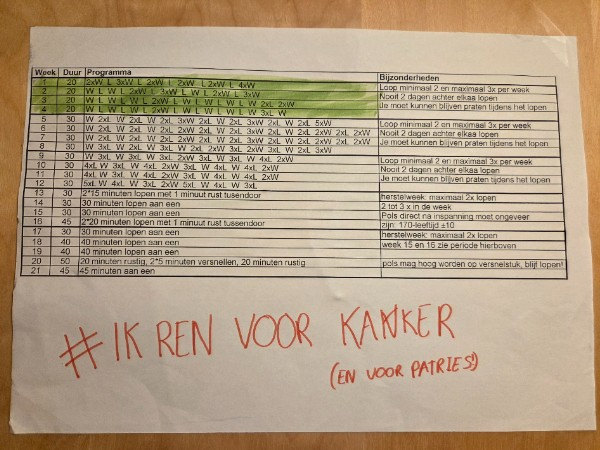 Week Duur Programma Bijzonderheden
1 20 2xW L 3xW L 2xW L 2xW L 2xW L 4xW
2 20 W L W L 2xW L 3xW L W L W L 3xW Loop minimaal 2 en maximaal 3x per week
3 20 W L W L W L 2xW L W L W L W L 2xW Nooit 2 dagen achter elkaa lopen
4 20 W L W L W L W L W 3xL W Je moet kunnen blijven praten tijdens het lopen
5 30 W 2xL W 2xL W 2xL 3xW 2xL W 2xL W 2xL 5xW
6 30 W 2xL W 2xL 2xW 2xL W 2xL 3xW 2xL W 2xL 2xW 2xL 2xW Loop minimaal 2 en maximaal 3x per week
7 30 W 2xL W 2xL 2xW 2xL W 2xL 2xW 2xL W 2xL 2xW 2xL 2xW Nooit 2 dagen achter elkaa lopen
8 30 W 3xL W 3xL W 2xL 2xW 3xL 2xW 3xL W 2xL 3xW Je moet kunnen blijven praten tijdens het lopen
9 30 W 3xL W 3xL W 3xL 2xW 3xL W 3xL W 4xL 2xW
10 30 4xL W 3xL W 4xL 2xW 4xL W 3xL W 4xL 2xW Loop minimaal 2 en maximaal 3x per week
11 30 4xL W 3xL W 4xL 2xW 4xL W 3xL W 4xL 2xW Nooit 2 dagen achter elkaa lopen
12 30 5xL W 4xL W 3xL 2xW 5xL W 4xL W 3xL Je moet kunnen blijven praten tijdens het lopen
13 30 2*15 minuten lopen met 1 minuut rust tussendoor herstelweek: maximaal 2x lopen
14 30 30 minuten lopen aan een 2 tot 3 x in de week
15 30 30 minuten lopen aan een Pols direct na inspanning moet ongeveer
16 45 2*20 minuten lopen met 1 minuut rust tussendoor zijn: 170-leeftijd ±10
17 30 30 minuten lopen aan een herstelweek: maximaal 2x lopen
18 40 40 minuten lopen aan een week 15 en 16 zie periode hierboven
19 40 40 minuten lopen aan een
20 50 20 minuten rustig, 2*5 minuten versnellen, 20 minuten rustig pols mag hoog worden op versnelstuk, blijf lopen!
21 45 45 minuten aan een
#IK REN VOOR KANKER
(EN VOOR PATRIES!)